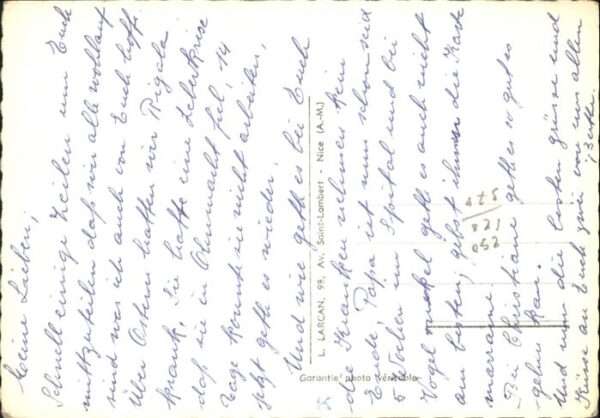 Meine Lieben,
Schnell einige Zeilen um Euch
mitzuteilen daß wir alle wohlauf
sind was ich auch von Euch hoffe.
Über Ostern hatten wir
krank. Sie hatte eine
daß sie in Ohnmacht fiel, 14
Tage konnte sie nicht arbeiten,
jetzt geht es wieder.
Und wie geht es bei Euch
die Kranken nehmen kein
Ende, Papa ist nun schon seit
im Spital und bei
Vogel geht es auch nicht
am besten, gebt ihnen die Karte
Bei Christiane geht es so gut es
gehen kan.
Und nun die besten grüsse und
Küsse an Euch von uns allen
L. LARCAN, 98, Av. Saint-Lambert - Nice (A.-M.)
Garantie photo véritable